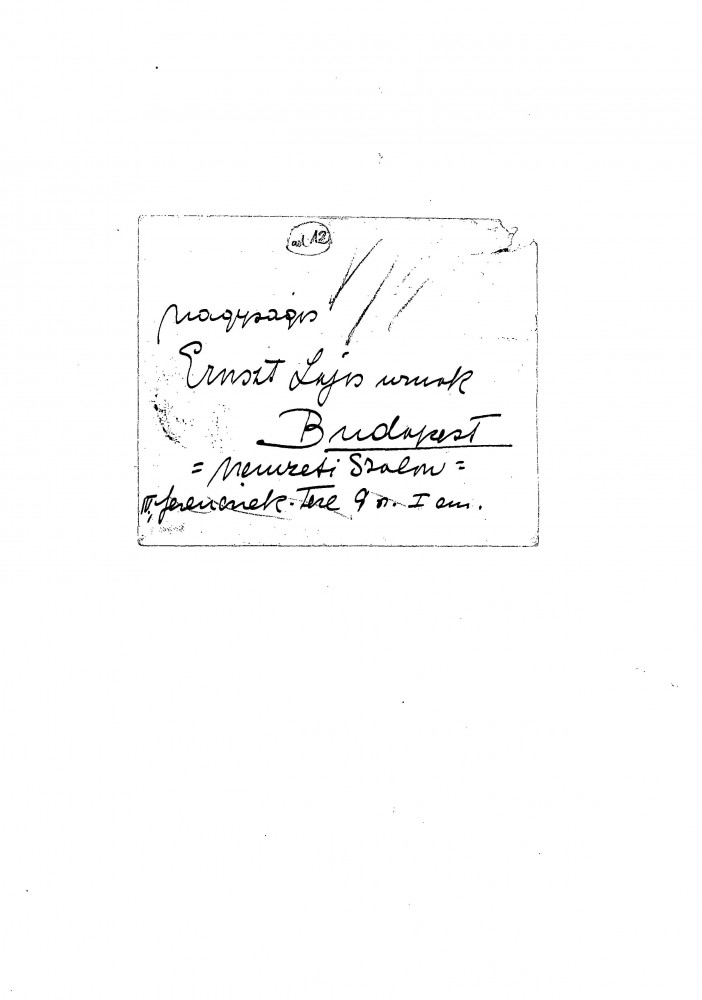 ad 12
Nagyságos
Ernszt Lajos urnak
Budapest
= Nemzeti Szalon =
IV, ferenciek-Tere 9 sz. I em.